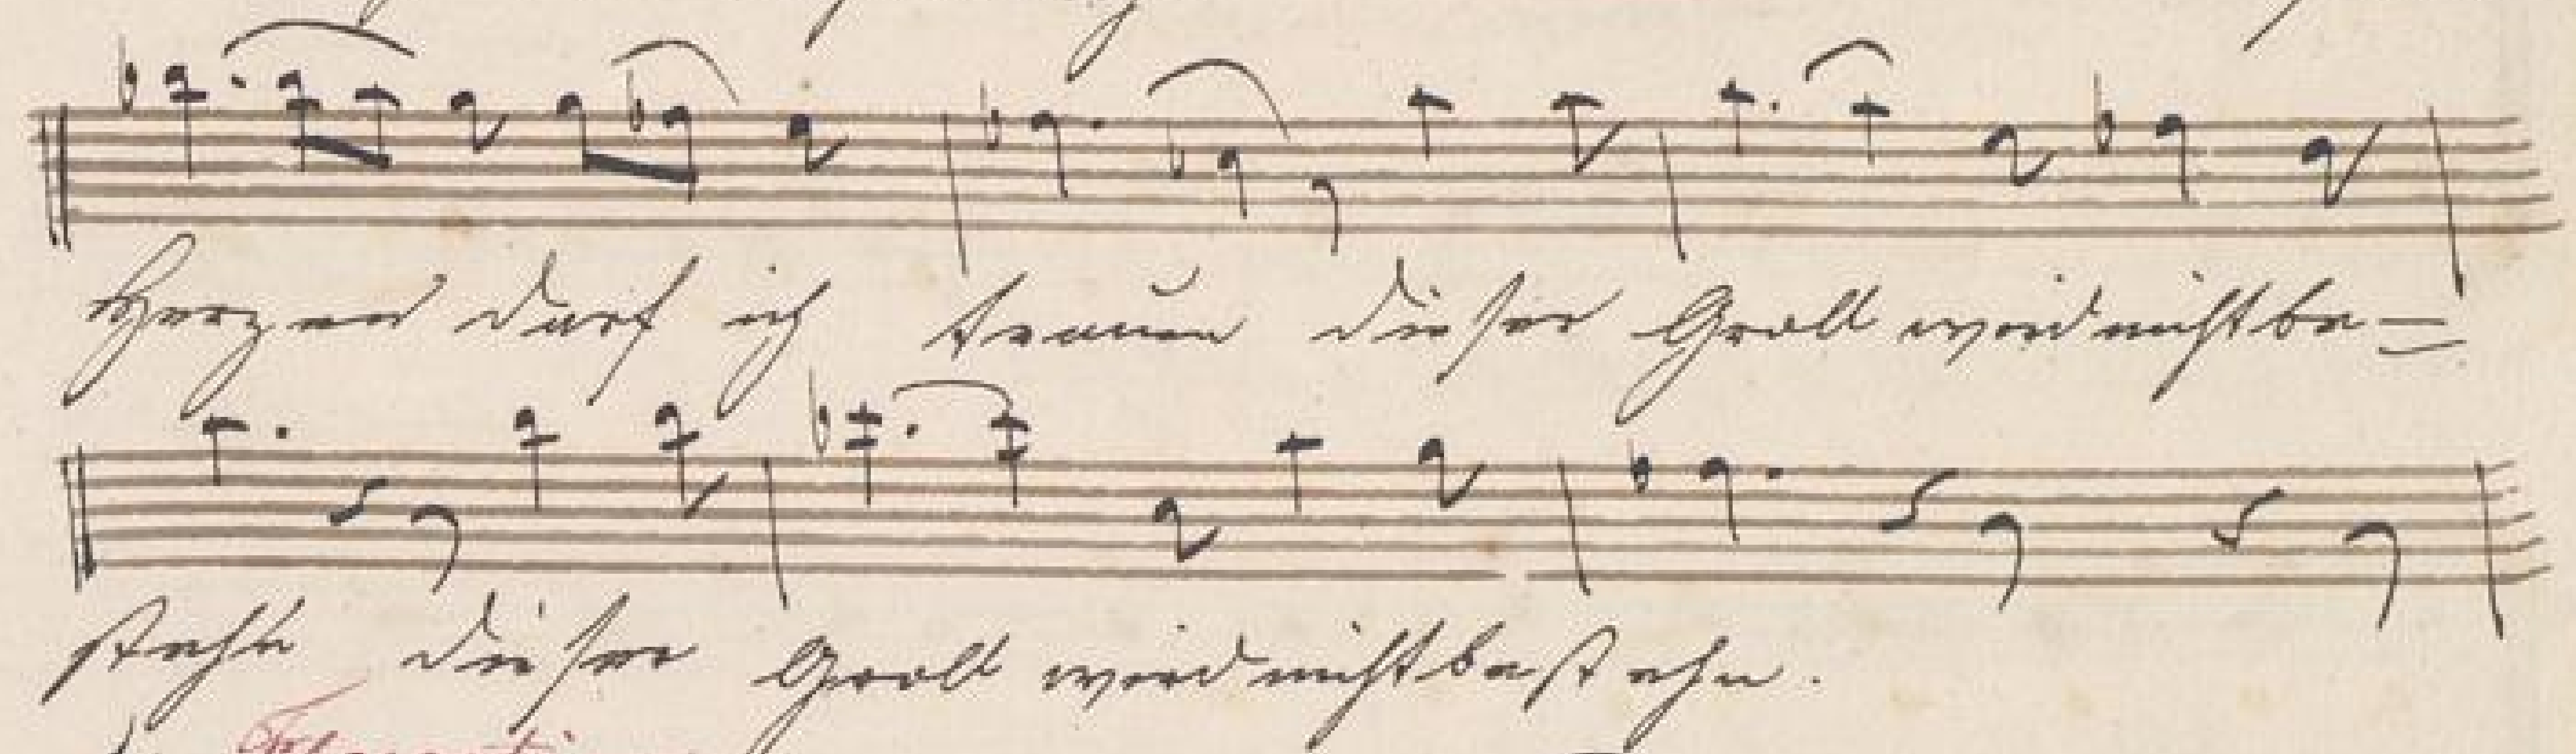 Herzen darf ich trauen dieser Groll wird nicht be=
stehn dieser Groll wird nicht bestehn.